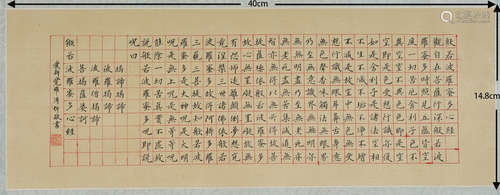 40cm
14.8cm
般若波羅蜜多心經
觀自在菩薩行深般若波
羅蜜多時照見五蘊皆空
度一切苦厄舍利子色不
異空空不異色色即是空
空即是色受想行識亦復
如是舍利子是諸法空相
不生不滅不垢不淨不增
不減是故空中無色無受
想行識無眼耳鼻舌身意
無色聲香味觸法無眼界
乃至無意識界無無明亦
無無明盡乃至無老死亦
無老死盡無苦集滅道無
智亦無得以無所得故菩
提薩埵依般若波羅蜜多
故心無罣礙無罣礙故無
有恐怖遠離顛倒夢想究
竟涅槃三世諸佛依般若
波羅蜜多故得阿耨多羅
三藐三菩提故知般若波
羅蜜多是大神呪是大明
呪是無上呪是無等等呪
能除一切苦真實不虛故
說般若波羅蜜多呪即說
呪曰
揭諦揭諦
波羅揭諦
波羅僧揭諦
菩提薩婆訶
般若波羅蜜多心經
愛新覺羅溥忻敬書